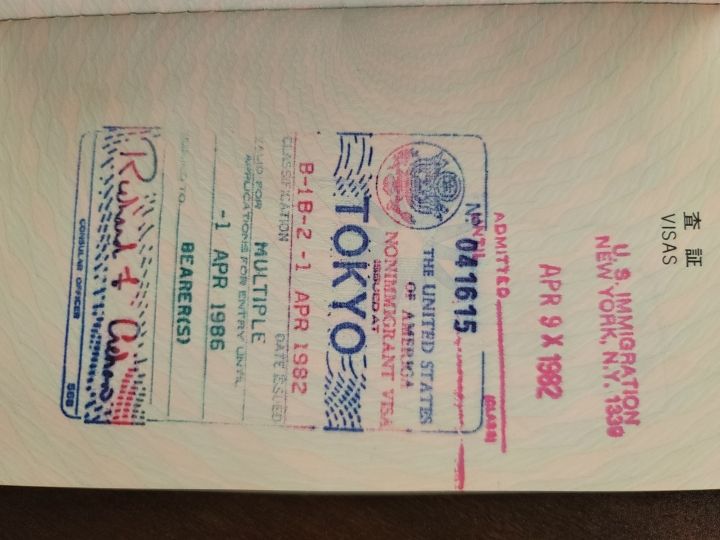 査証
VISAS
U. S. IMMIGRATION
NEW YORK, N.Y. 1339
APR 9 X 1982
ADMITTED
(CLASS)
UNTIL
Nº 041615
THE UNITED STATES
OF AMERICA
NONIMMIGRANT VISA
ISSUED AT
TOKYO
B-1B-2 -1 APR 1982
CLASSIFICATION DATE ISSUED
VALID FOR MULTIPLE
APPLICATIONS FOR ENTRY UNTIL
-1 APR 1986
ISSUED TO
BEARER(S)
Richard
CONSULAR OFFICER